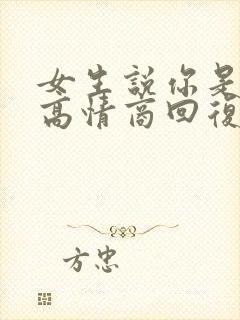 女生說你是
高情商回復
方忠